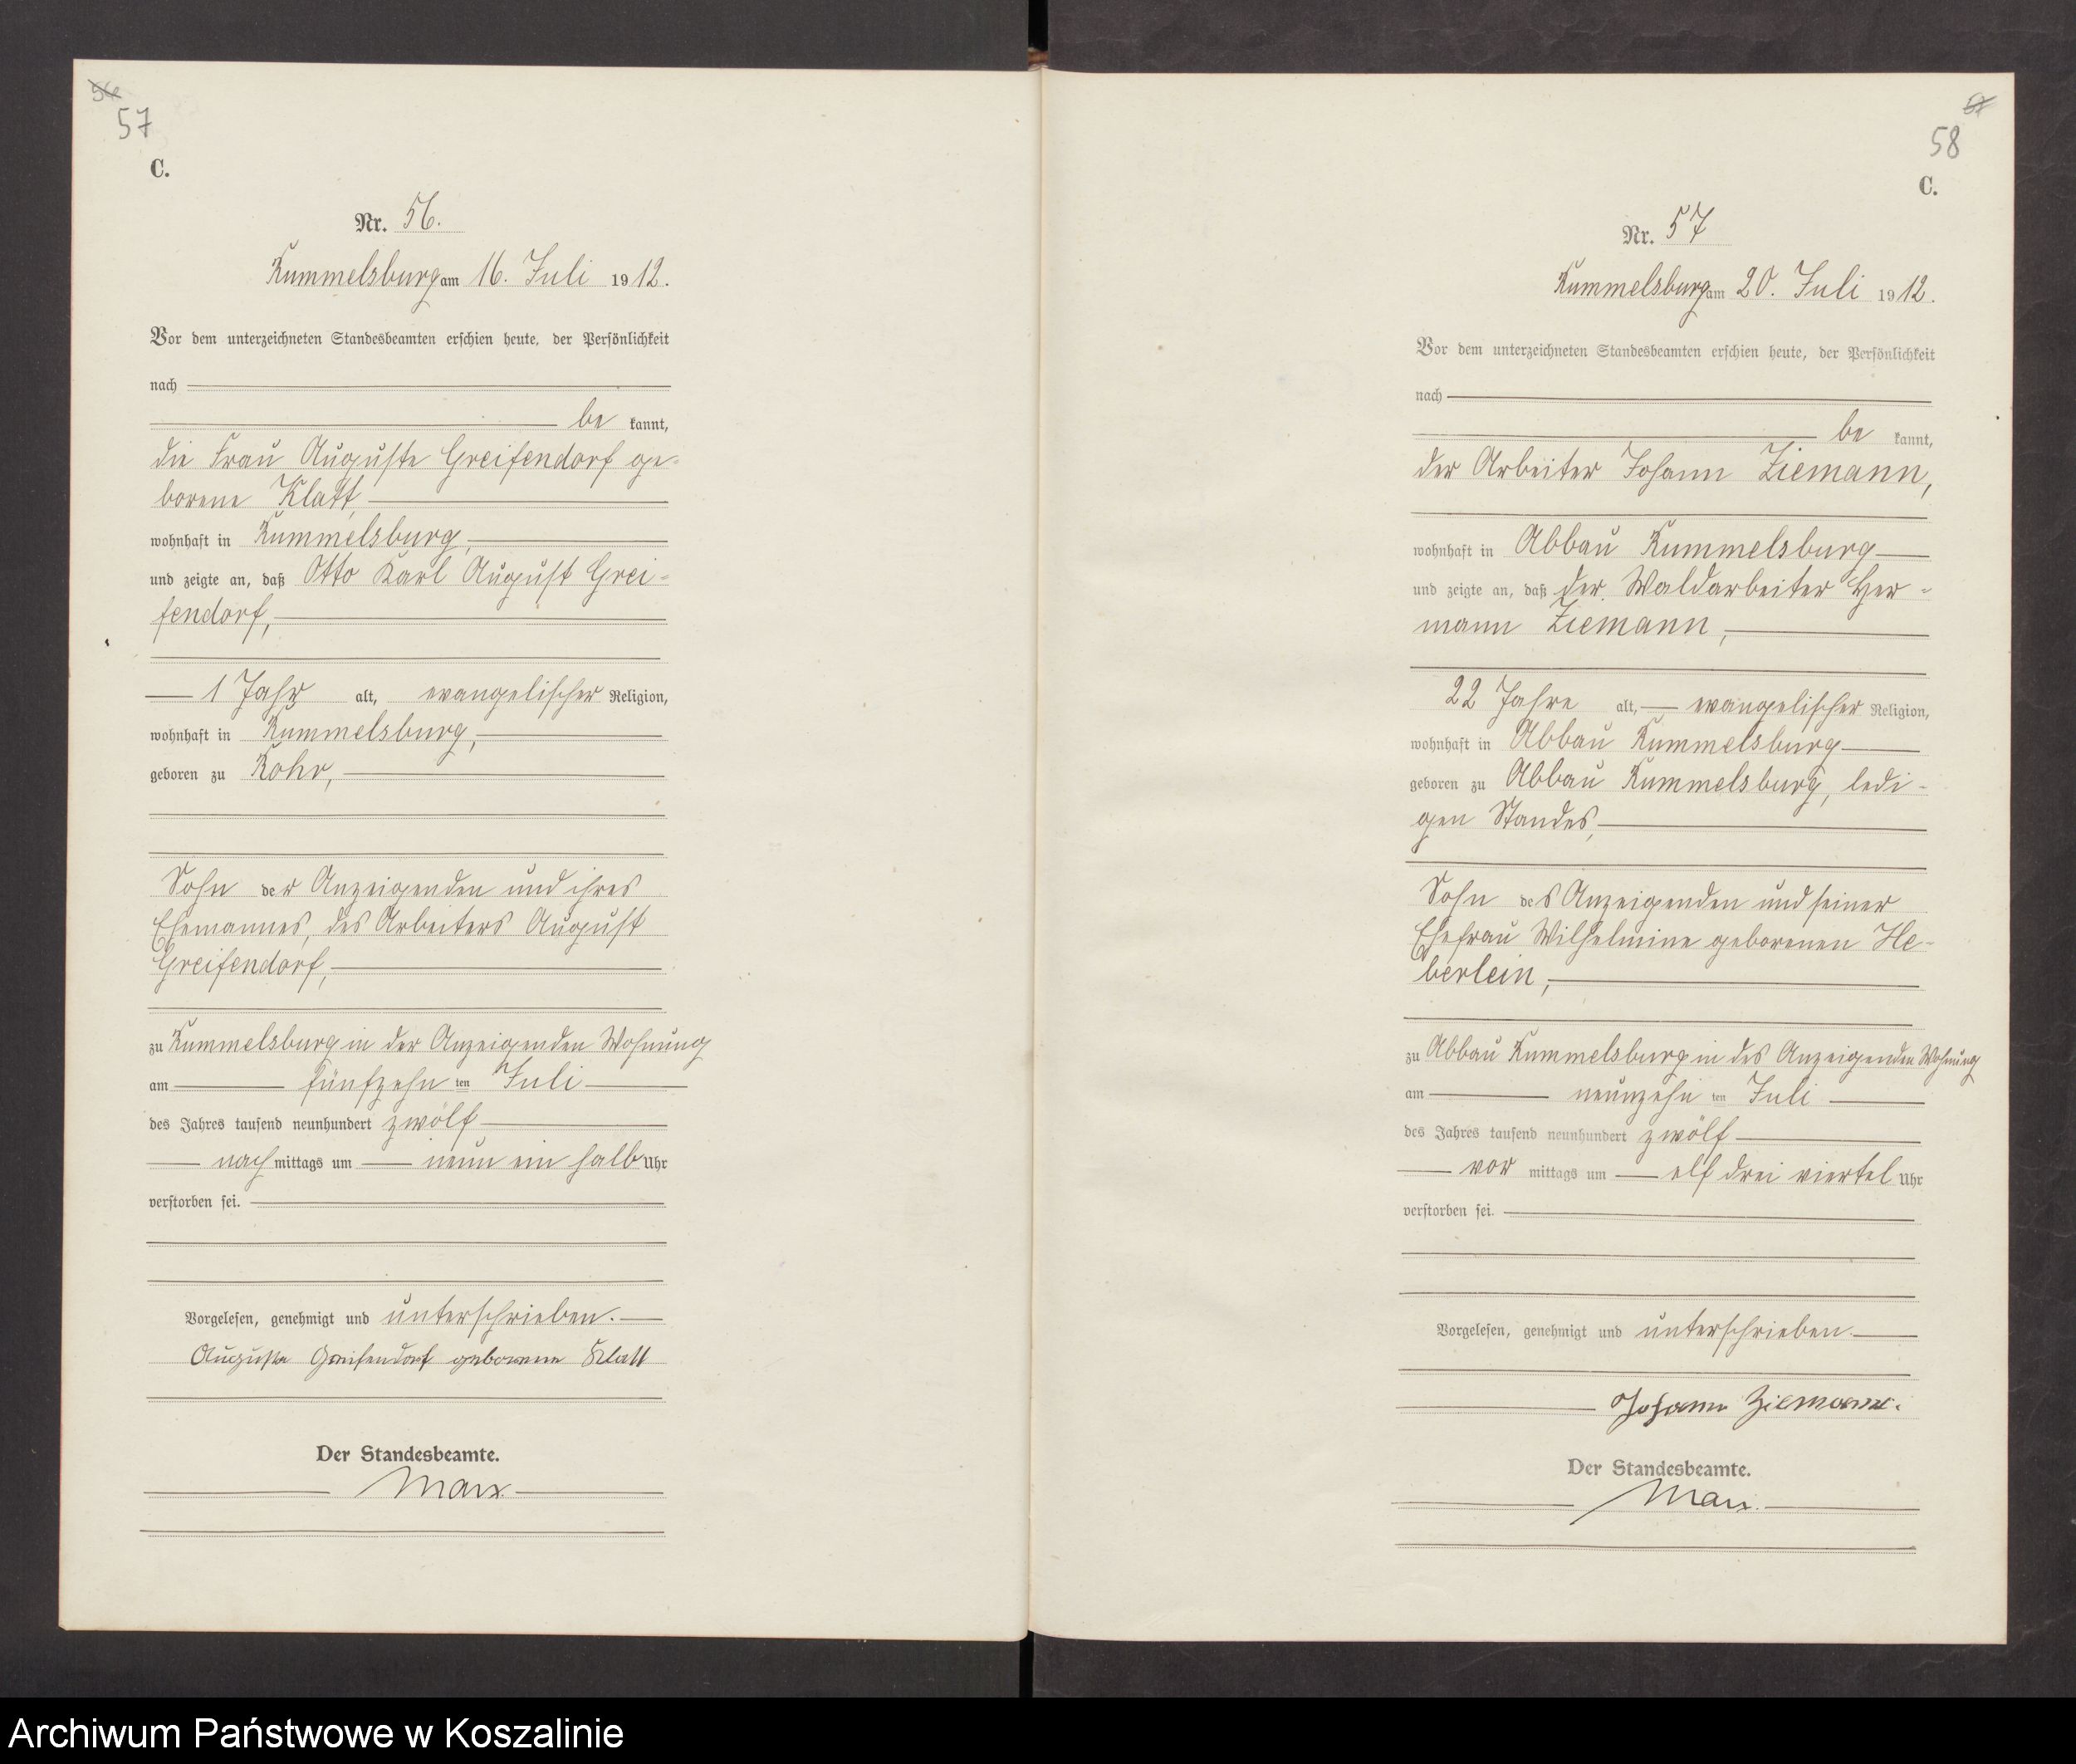 56
57
C.
Nr. 56.
Rummelsburg am 16. Juli 1912.
Vor dem unterzeichneten Standesbeamten erschien heute, der Persönlichkeit
nach
be kannt,
die Frau Auguste Greifendorf ge-
borene Klatt,
wohnhaft in Rummelsburg,
und zeigte an, daß Otto Karl August Grei-
fendorf,
1 Jahr alt, evangelischer Religion,
wohnhaft in Rummelsburg,
geboren zu Rohr,
Sohn der Anzeigenden und ihres
Ehemannes, des Arbeiters August
Greifendorf,
zu Rummelsburg in der Anzeigenden Wohnung
am fünfzehn ten Juli
des Jahres tausend neunhundert zwölf
nach mittags um neun ein halb Uhr
verstorben sei.
Vorgelesen, genehmigt und unterschrieben.
Auguste Greifendorf geborene Klatt
Der Standesbeamte.
Marx.
57
58
C.
Nr. 57
Rummelsburg am 20. Juli 1912.
Vor dem unterzeichneten Standesbeamten erschien heute, der Persönlichkeit
nach
be kannt,
der Arbeiter Johann Ziemann,
wohnhaft in Abbau Rummelsburg
und zeigte an, daß der Waldarbeiter Her-
mann Ziemann,
22 Jahre alt, evangelischer Religion,
wohnhaft in Abbau Rummelsburg
geboren zu Abbau Rummelsburg, ledi-
gen Standes,
Sohn des Anzeigenden und seiner
Ehefrau Wilhelmine geborenen He-
berlein,
zu Abbau Rummelsburg in des Anzeigenden Wohnung
am neunzehn ten Juli
des Jahres tausend neunhundert zwölf
vor mittags um elf drei viertel Uhr
verstorben sei.
Vorgelesen, genehmigt und unterschrieben.
Johann Ziemann.
Der Standesbeamte.
Marx.
Archiwum Państwowe w Koszalinie